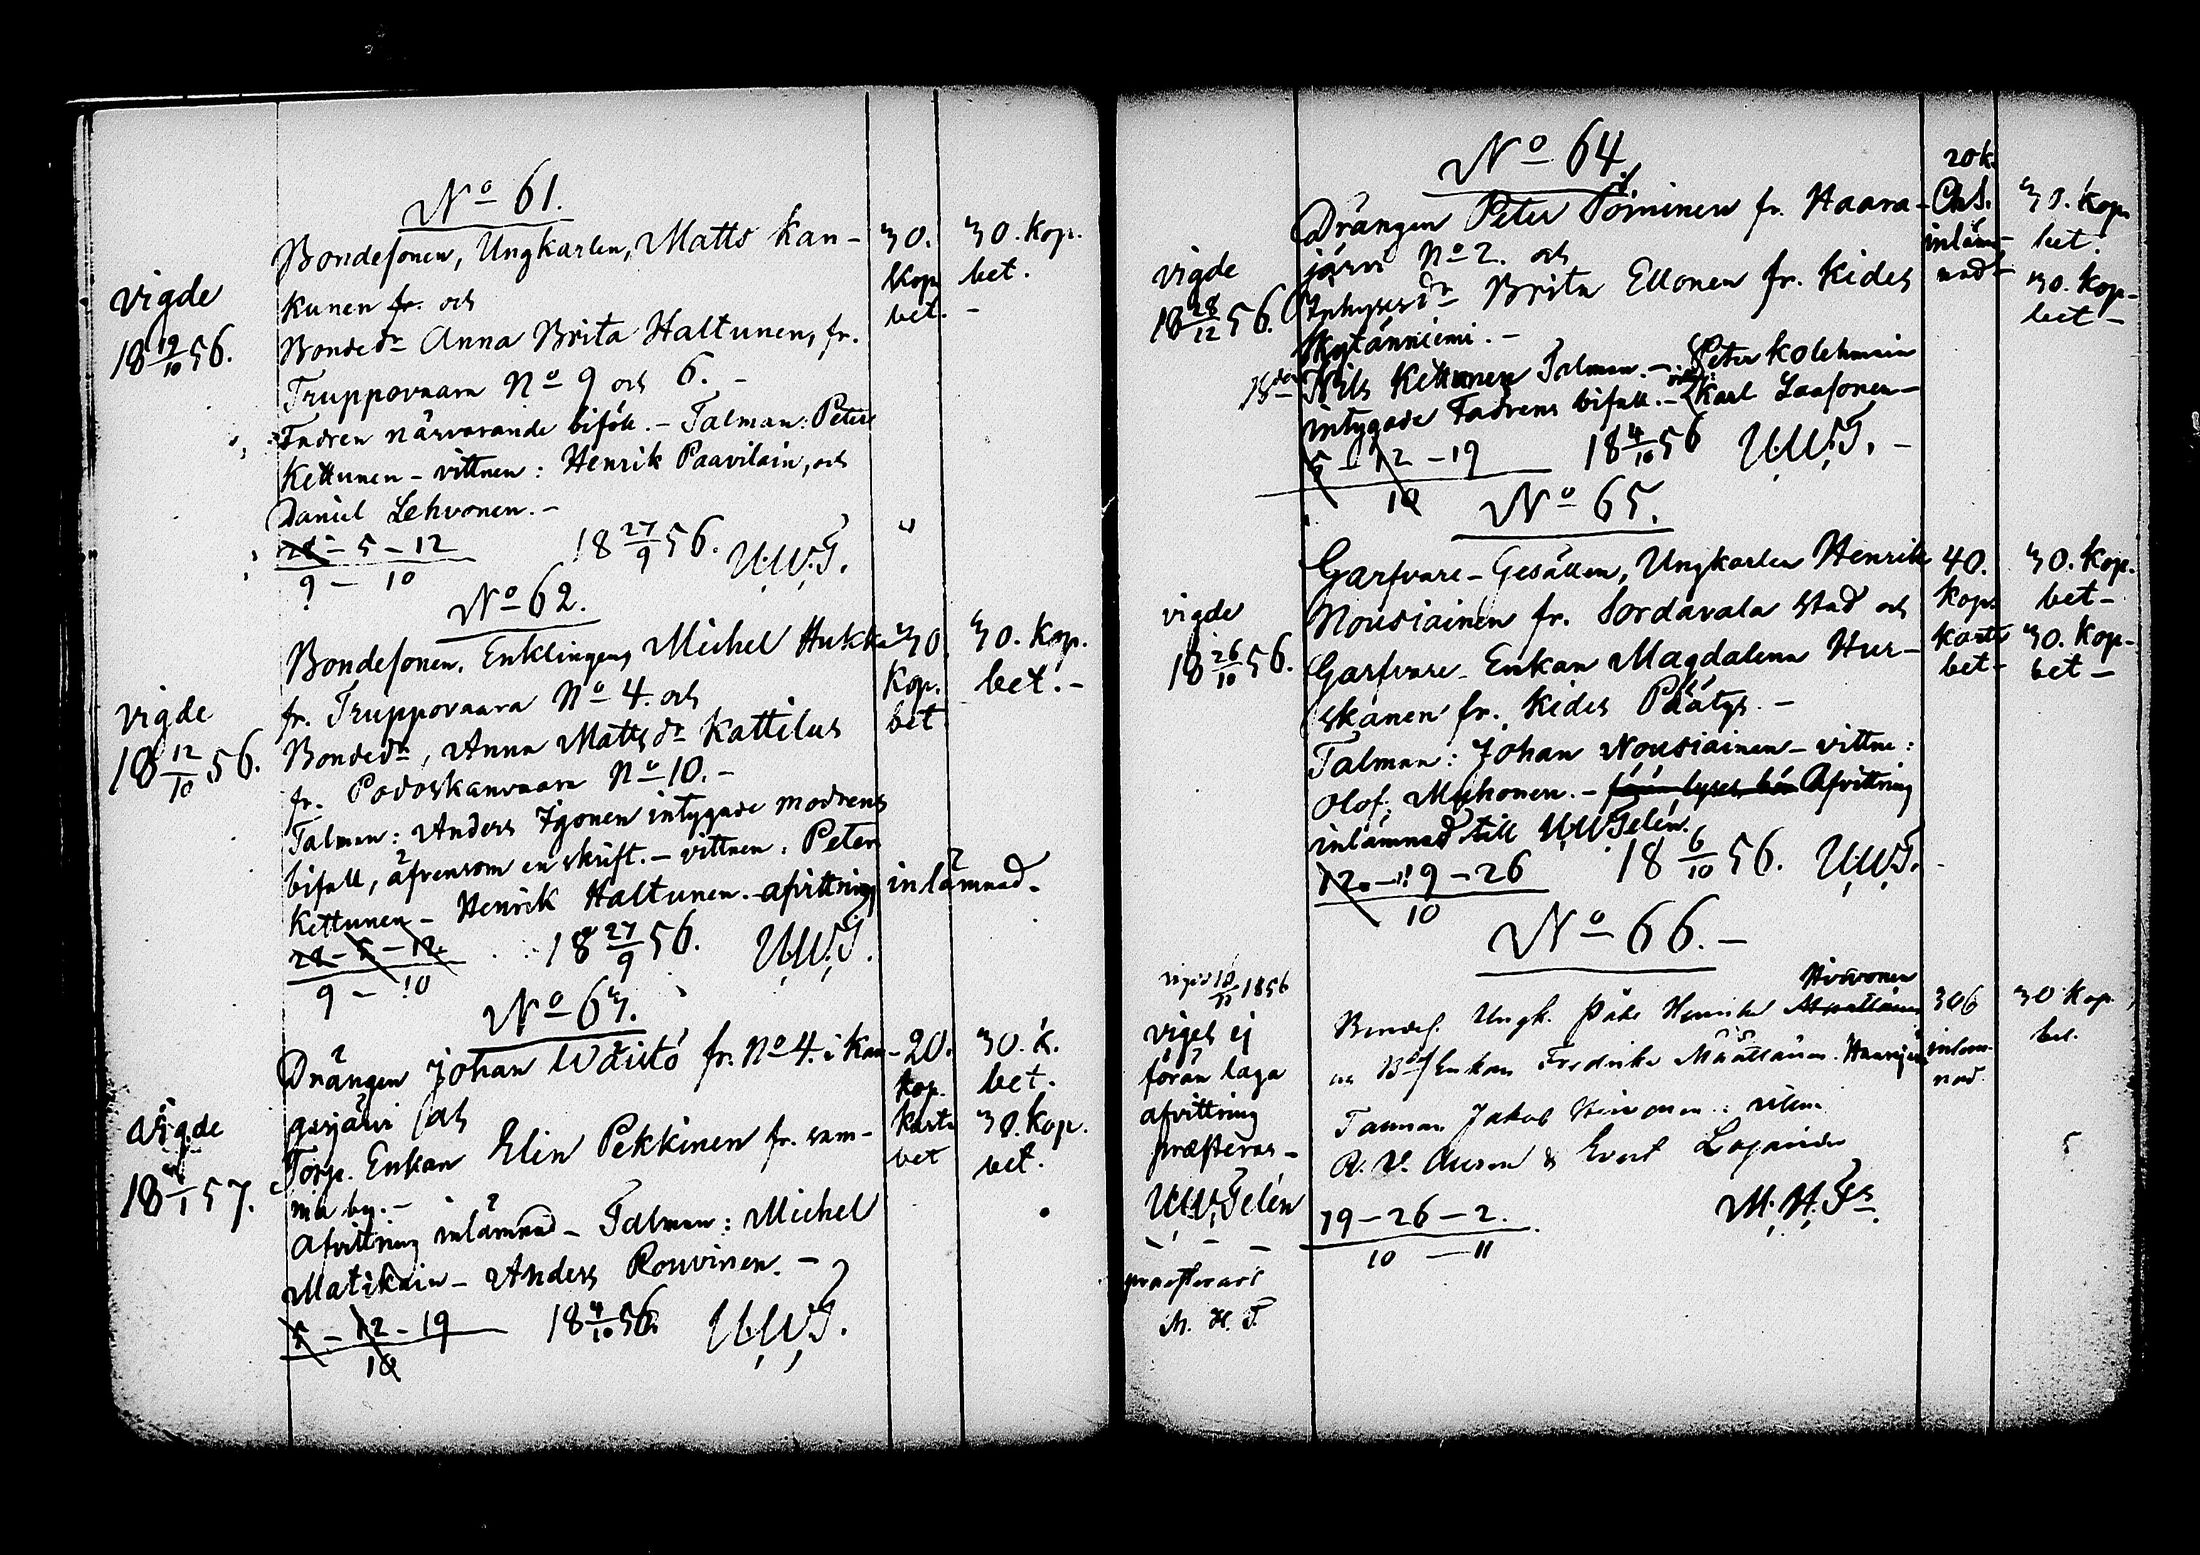 No 61.
Bondesonen, Ungkarlen, Matts Kan-
kunen fr. och
Bondedr Anna Brita Haltunen, fr.
Truppovaara No 9 och 6. -
Fadren närvarande biföll. - Talman: Peter
Kettunen - vittnen: Henrik Paavilain, och
Daniel Lehvonen. -
28 - 5 - 12
9 - 10
18 27/9 56. U.W.T.
vigde
18 19/10 56.
30. Kop. bet. -
30. Kop. bet.
No 62.
Bondesonen, Enklingen, Michel Hukka
fr. Truppovaara No 4. och
Bondedr, Anna Mattsdr Kattilus
fr. Podoskanvaara No 10. -
Talman: Anders Igonen intygade modrens
bifall, äfvensom en skrift. - vittnen: Peter
Kettunen - Henrik Haltunen. - afvittring inlämnad.
28 - 5 - 12.
9 - 10
18 27/9 56. U.W.T.
vigde
18 12/10 56.
30 Kop. bet
30. Kop. bet. -
No 63.
Drängen Johan Wäistö fr. No 4. i Kan-
gasjärvi och
Torp. Enkan Elin Pekkinen fr. sam-
ma by. -
Afvittring inlämnad - Talman: Michel
Matikain - Anders Rouvinen. -
5 - 12 - 19
10
18 4/10 56. U.W.T.
vigde
18 /1 57.
20. kop. karta bet
30. K. bet.
30. Kop. bet.
No 64.
Drängen Peter Törninen fr. Haara-
järvi No 2. och
Inhysesdr Brita Ellonen fr. Kides
Kytänniemi. -
Nils Kettunen Talman. - Peter Kolehmain
intygade Fadrens bifall. - Karl Laasonen -
5 - 12 - 19
10
18 4/10 56 U.W.T. -
vigde
18 28/12 56.
20 k. Ch S. inläm- nad -
30. Kop. bet.
30. Kop - bet -
No 65.
Garfvare - Gesällen, Ungkarlen Henrik
Nousiainen fr. Sordavala Stad och
Garfvare - Enkan Magdalena Hur-
skanen fr. Kides Päätys. -
Talman: Johan Nousiainen - vittne:
Olof Muhonen. - Afvittring
inlämnad till U.W. Telén.
12. - 19 - 26
10
18 6/10 56. U.W.T.
vigde
18 26/10 56.
40. kop. karta bet -
30. Kop. bet -
30. Kop - bet -
No 66. -
Hirvonen
Bondes. Ungk. Påhl Henrik
Enkan Fredrika Määttäinen.
Talman Jakob Hirvonen: vittne
& Evert
19 - 26 - 2.
10 - 11
1856
viges ej
förän laga
afvittring
præsteras -
U.W. Telén
præsterad
M. H. T.
306 inlem- nad
30 Kop. bet.